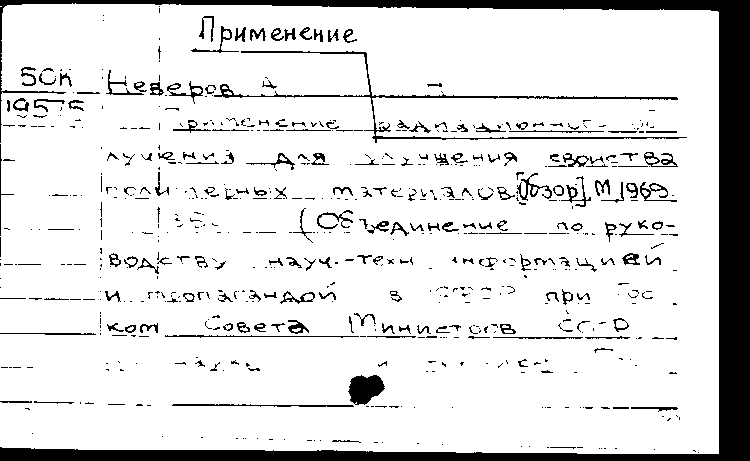 Применение
50К Неверов А
19575
Применение радиационного об
лучения для улучшения свойства
полимерных материалов. [Обзор]. М, 1969.
35с (Объединение по руко-
водству науч.-техн информацией
и пропагандой в при Гос
ком Совета Министров СССР
науке и